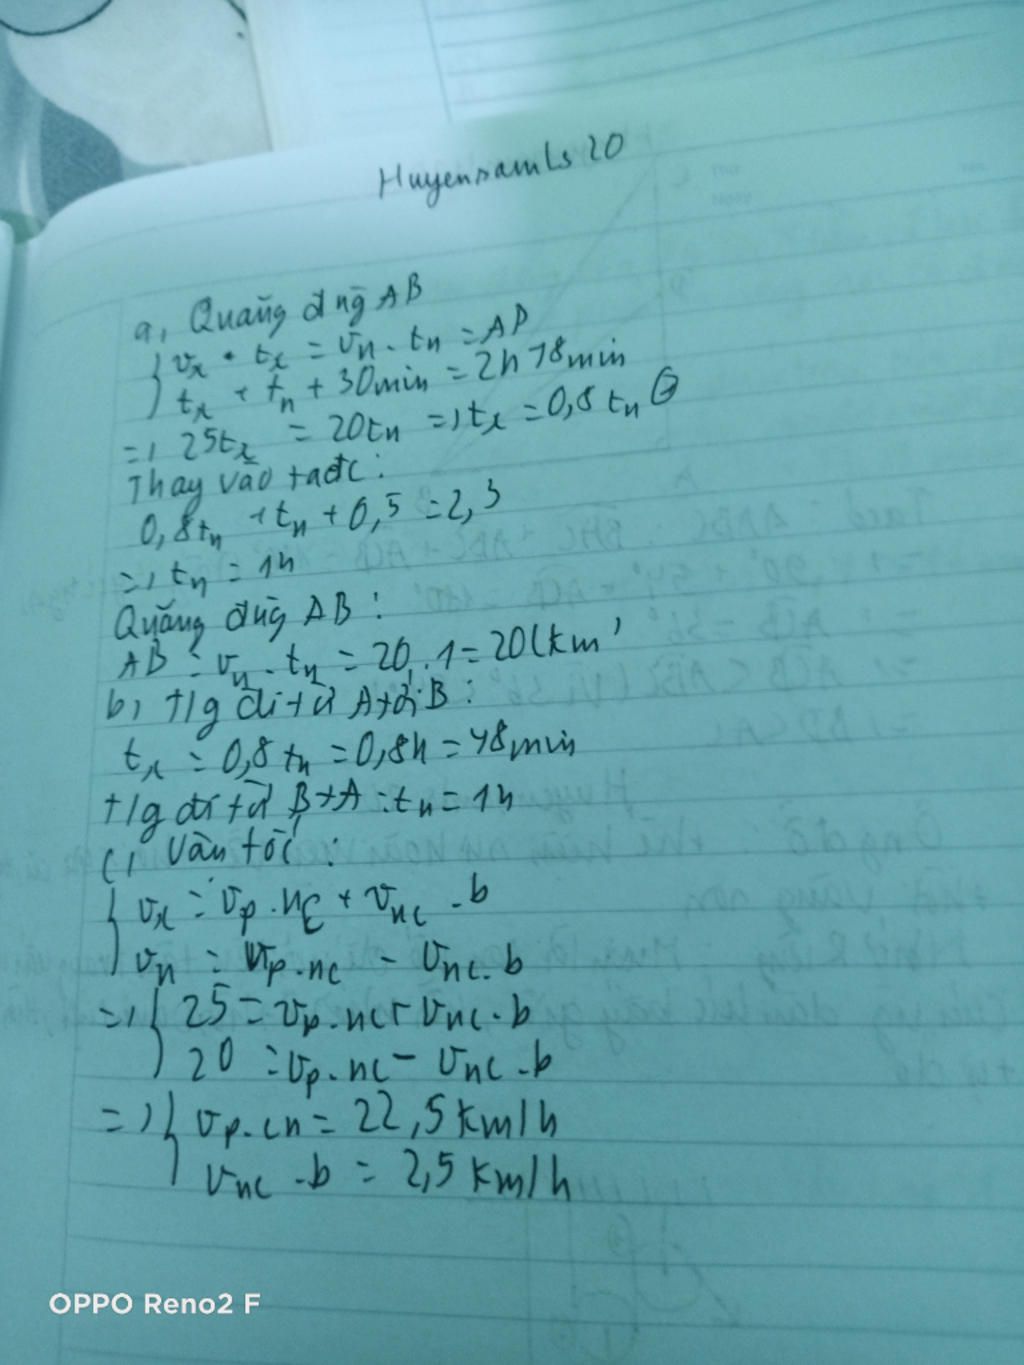 Huyennamls 20
a, Quãng đng AB
vx . tx = vn . tn = AB
tx + tn + 30min = 2h 18min
=> 25tx = 20tn => tx = 0,8 tn
Thay vào tađc :
0,8tn + tn + 0,5 = 2,3
=> tn = 1h
Quãng đng AB :
AB = vn . tn = 20 . 1 = 20(km)
b, t/g đi từ A tới B :
tx = 0,8 tn = 0,8h = 48min
t/g đi từ B→A : tn = 1h
c, Vân tốc :
vx = vp.nc + vnc-b
vn = vp.nc - vnc.b
=> 25 = vp.nc + vnc.b
20 = vp.nc - vnc-b
=> vp.cn = 22,5 km/h
vnc-b = 2,5 km/h
OPPO Reno2 F